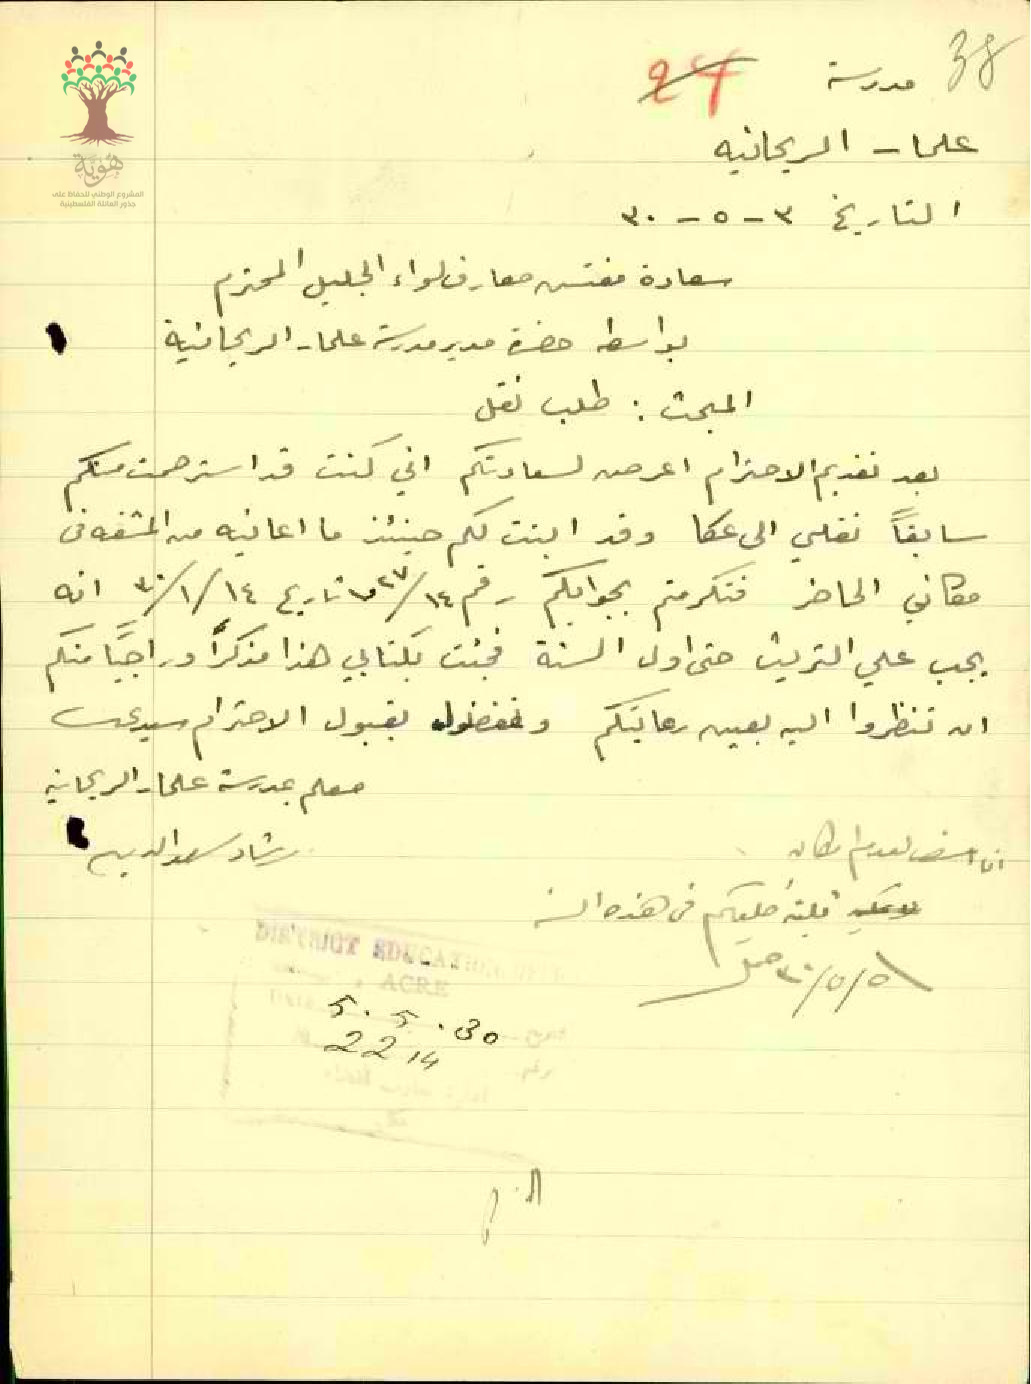 38
24
مدرسة
علما - الريحانيه
التاريخ ٣ - ٥ - ٣٠
سعادة مفتش معارف لواء الجليل المحترم
بواسطة حضرة مدير مدرسة علما - الريحانية
المبحث : طلب نقل
بعد تقديم الاحترام اعرض لسعادتكم اني كنت قد استرحمت منكم
سابقاً نقلي الى عكا وقد ابنت لكم حينئذ ما اعانيه من المشقه في
مكاني الحاضر فتكرمتم بجوابكم رقم تاريخ ١٤/١/٣٠ انه
يجب علي التريث حتى اول السنة فجئت بكتابي هذا مذكراً وراجياً منكم
ان تنظروا اليه بعين رعايتكم وتفضلوا بقبول الاحترام سيدي
معلم بمدرسة علما - الريحانيه
رشاد سعد الدين
انا اسف لعدم امكان
تلبية طلبكم في هذه السنه
٥/٥/٣٠
DISTRICT EDUCATION
ACRE
5. 5. 30
2214
هوية
المشروع الوطني للحفاظ على
جذور العائلة الفلسطينية